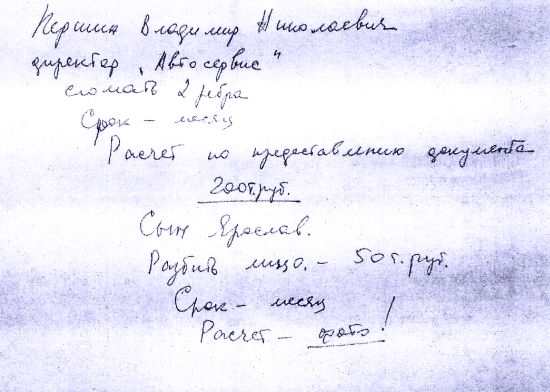 Першин Владимир Николаевич
директор „Автосервис"
сломать 2 ребра
Срок – месяц
Расчет по предоставлению документа
200т.руб.
Сын Ярослав.
Разбить лицо. – 50 т. руб.
Срок – месяц
Расчет – фото!